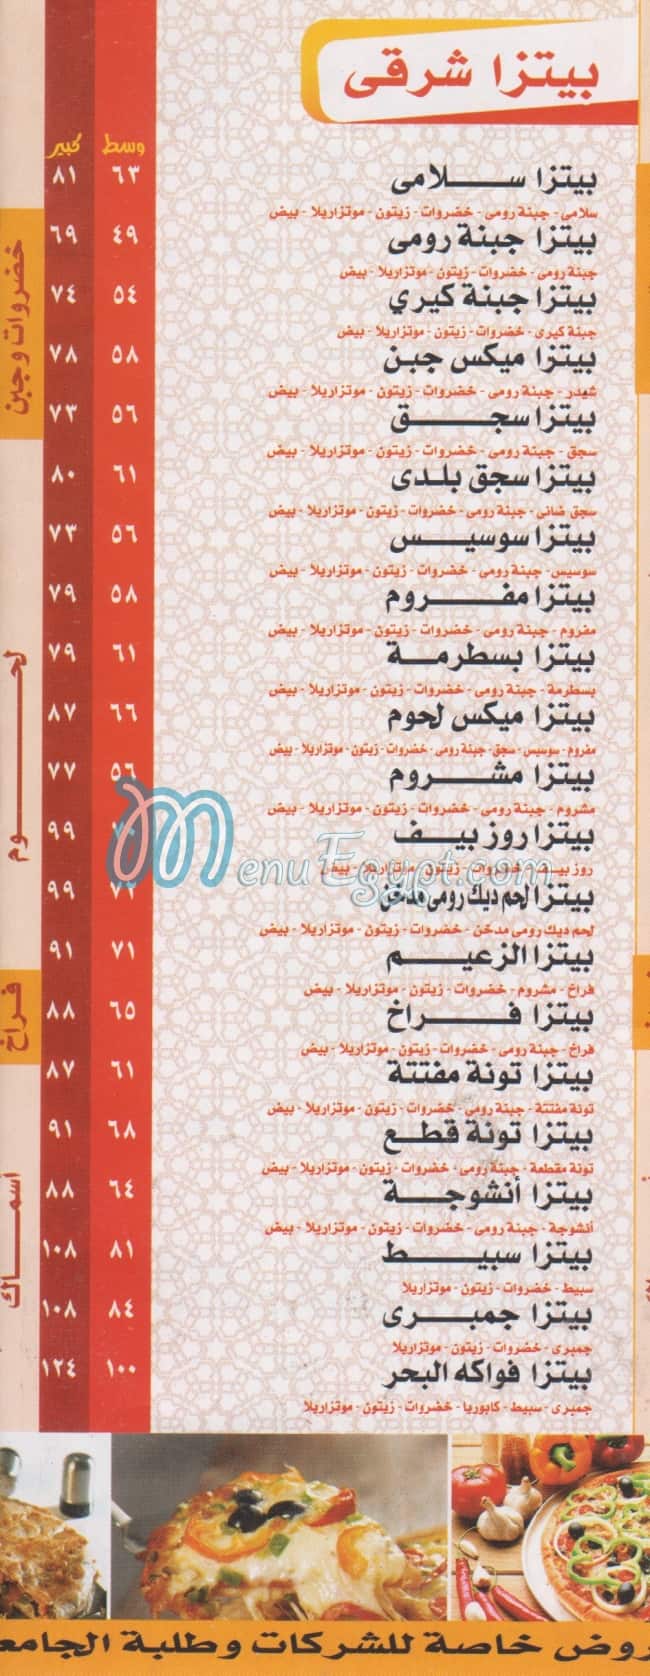 بيتزا شرقى
وسط كبير
بيتزا سلامى ٦٣ ٨١
سلامى - جبنة رومى - خضروات - زيتون - موتزاريلا - بيض
بيتزا جبنة رومى ٤٩ ٦٩
جبنة رومى - خضروات - زيتون - موتزاريلا - بيض
بيتزا جبنة كيري ٥٤ ٧٤
جبنة كيرى - خضروات - زيتون - موتزاريلا - بيض
بيتزا ميكس جبن ٥٨ ٧٨
شيدر - جبنة رومى - خضروات - زيتون - موتزاريلا - بيض
بيتزا سجق ٥٦ ٧٣
سجق - جبنة رومى - خضروات - زيتون - موتزاريلا - بيض
بيتزا سجق بلدى ٦١ ٨٠
سجق ضانى - جبنة رومى - خضروات - زيتون - موتزاريلا - بيض
بيتزا سوسيس ٥٦ ٧٣
سوسيس - جبنة رومى - خضروات - زيتون - موتزاريلا - بيض
بيتزا مفروم ٥٨ ٧٩
مفروم - جبنة رومى - خضروات - زيتون - موتزاريلا - بيض
بيتزا بسطرمة ٦١ ٧٩
بسطرمة - جبنة رومى - خضروات - زيتون - موتزاريلا - بيض
بيتزا ميكس لحوم ٦٦ ٨٧
مفروم - سوسيس - سجق - جبنة رومى - خضروات - زيتون - موتزاريلا - بيض
بيتزا مشروم ٥٦ ٧٧
مشروم - جبنة رومى - خضروات - زيتون - موتزاريلا - بيض
بيتزا روز بيف ٩٩
روز بيف - خضروات - زيتون - موتزاريلا - بيض
بيتزا لحم ديك رومى مدخن ٧٢ ٩٩
لحم ديك رومى مدخن - خضروات - زيتون - موتزاريلا - بيض
بيتزا الزعيم ٧١ ٩١
فراخ - مشروم - خضروات - زيتون - موتزاريلا - بيض
بيتزا فراخ ٦٥ ٨٨
فراخ - جبنة رومى - خضروات - زيتون - موتزاريلا - بيض
بيتزا تونة مفتتة ٦١ ٨٧
تونة مفتتة - جبنة رومى - خضروات - زيتون - موتزاريلا - بيض
بيتزا تونة قطع ٦٨ ٩١
تونة مقطعة - جبنة رومى - خضروات - زيتون - موتزاريلا - بيض
بيتزا أنشوجة ٦٤ ٨٨
أنشوجة - جبنة رومى - خضروات - زيتون - موتزاريلا - بيض
بيتزا سبيط ٨١ ١٠٨
سبيط - خضروات - زيتون - موتزاريلا
بيتزا جمبرى ٨٤ ١٠٨
جمبرى - خضروات - زيتون - موتزاريلا
بيتزا فواكه البحر ١٠٠ ١٢٤
جمبرى - سبيط - كابوريا - خضروات - زيتون - موتزاريلا
خضروات وجبن
لحوم
فراخ
أسماك
MenuEgypt.com
روض خاصة للشركات وطلبة الجامع